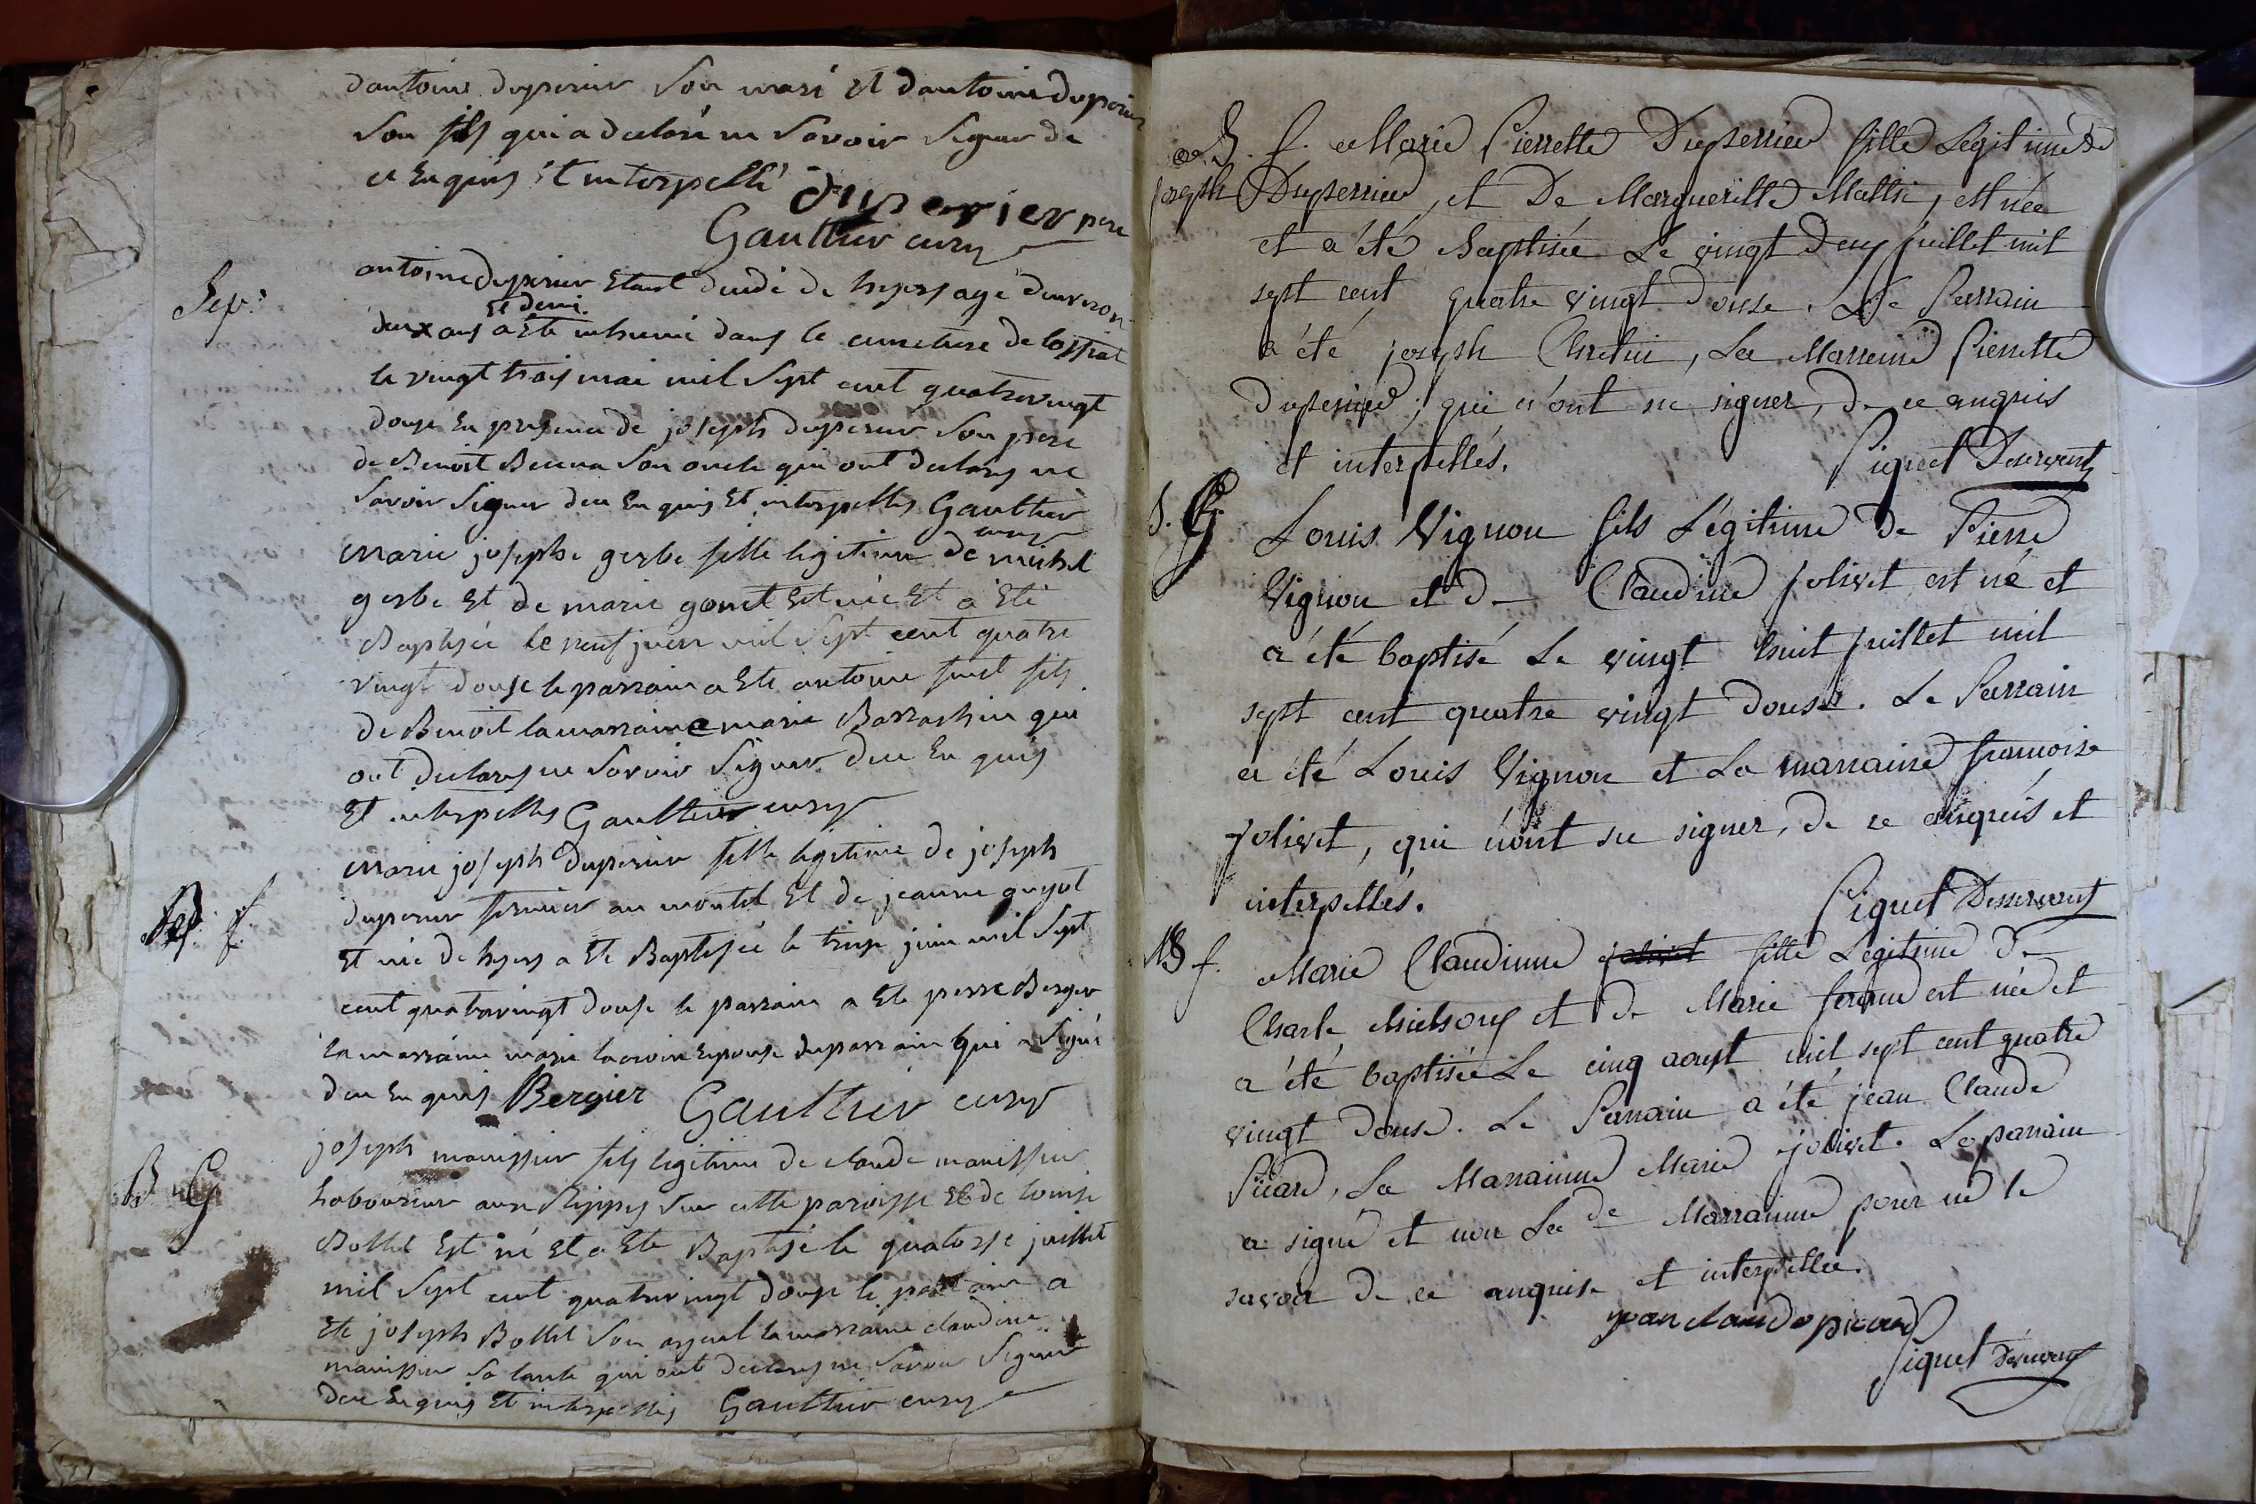 dantoine duperier son mari et dantoine duperier
son fils qui a declaré ne savoir signer de
ce enquis et interpellé
duperier pere
Gauthier curé
Sep.
antoine duperier etant decedé de hyers agé denviron
et demi
deux ans a eté inhumé dans le cimetiere de
le vingt trois mai mil sept cent quatrevingt
douse en presence de joseph duperier son pere
de Benoit son oncle qui ont declarés ne
savoir signer de ce enquis et interpellés Gauthier
curé
marie josephe gerbe fille legitime de michel
gerbe et de marie gonet est née et a eté
Baptisée le neuf juin mil sept cent quatre
vingt douse le parrain a eté antoine fils
de Benoit la marraine marie Barrachin qui
ont declarés ne savoir signer de ce enquis
et interpellés Gauthier curé
f.
marie joseph duperier fille legitime de joseph
duperier fermier au montel et de jeanne guyot
et née de hyers a eté Baptisée le treise juin mil sept
cent quatrevingt douse le parrain a eté pierre Bergier
la marraine marie lacroix epouse du parrain qui a signé
de ce enquis Bergier Gauthier curé
B G
joseph manissier fils legitime de claude manissier
laboureur aux Rippes sur cette paroisse et de louise
Bollet est né et a eté Baptisé le quatorse juillet
mil sept cent quatrevingt douse le parrain a
eté joseph Bollet son ayeul la marraine claudine
manissier sa tante qui ont declarés ne savoir signer
de ce enquis et interpellés Gauthier curé
B. f. Marie Pierrette Duperrier fille Légitime de
joseph Duperrier, et De Margueritte Mathi, est née
et a été baptisée Le vingt Deux juillet mil
sept cent quatre vingt Douse. Le Parrain
a été joseph Chretin, La Marreine Pierrette
Duperier, qui n'ont su signer, de ce anquis
et interpellés.
Piquet Desservent
B. G
Louis Vignon fils Légitime de Pierre
Vignon et de Claudine jolivet est né et
a été baptisé Le vingt huit juillet mil
sept cent quatre vingt Douse. Le Parrain
a été Louis Vignon et La marraine francoise
jolivet, qui n'ont su signer, de ce anquis et
interpellés.
Piquet Desservent
B f.
Marie Claudinne jolivet fille Légitime de
Charle et de Marie est née et
a été baptisée Le cinq aoust mil sept cent quatre
vingt Douse. Le Parrain a été jean Claude
Picard, La Marrainne Marie jolivet. Le parrain
a signé et non La de Marrainne pour ne le
savoir de ce anquise et interpellée.
jean claude picard
Piquet Desservent